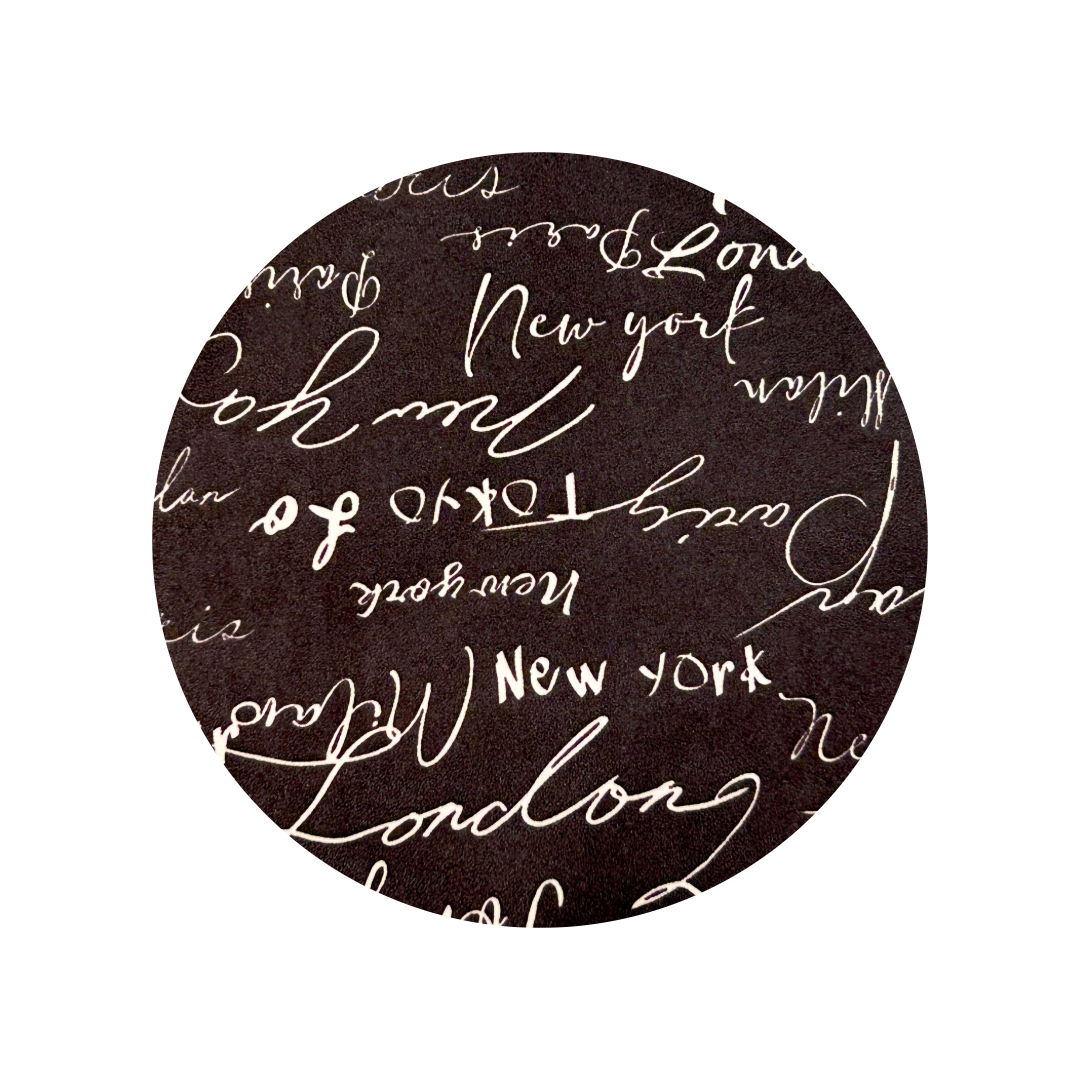 Paris
Lond
Paris
New york
Milan
New yo
lan
Lo
TOKYO
Paris
New york
is
New york
Milano
Ne
London